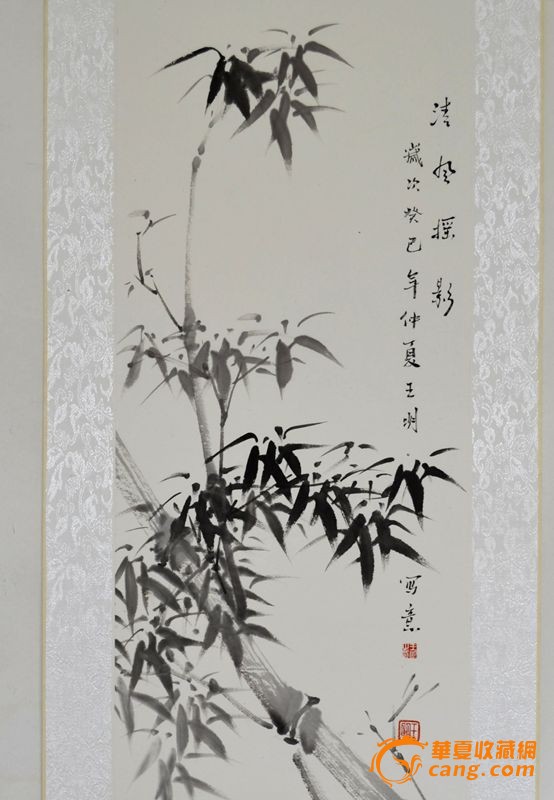 清风影
歲次癸巳年仲夏王明
写意
華夏收藏網
cang.com